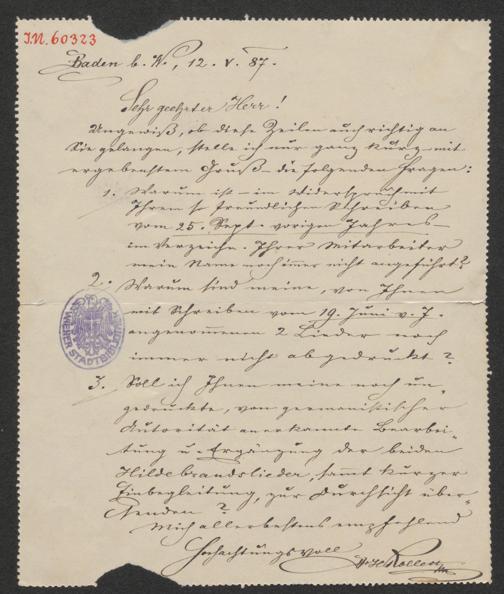 I.N. 60323
Baden b. W., 12. V. 87.
Sehr geehrter Herr!
Ungewiß, ob diese Zeilen auch richtig an
Sie gelangen, stelle ich nur ganz kurz mit
ergebenstem Gruß die folgenden Fragen:
1. Warum ist – im Widerspruch mit
Ihren so freundlichen Schreiben
vom 25. Sept. vorigen Jahres –
im Verzeichn. Ihrer Mitarbeiter
mein Name noch immer nicht angeführt?
2. Warum sind meine, von Ihnen
mit Schreiben vom 19. Juni v. J.
angenommenen 2 Lieder noch
immer nicht abgedruckt?
WIENER STADTBIBLIOTHEK
3. Soll ich Ihnen meine noch un-
gedruckte, von germanistischer
Autorität anerkannte Bearbei-
tung u. Ergänzung der beiden
Hildebrandslieder, sammt kurzer
Einbegleitung, zur Durchsicht über-
senden?
Mich allerbestens empfehlend
Hochachtungsvoll
Rollett